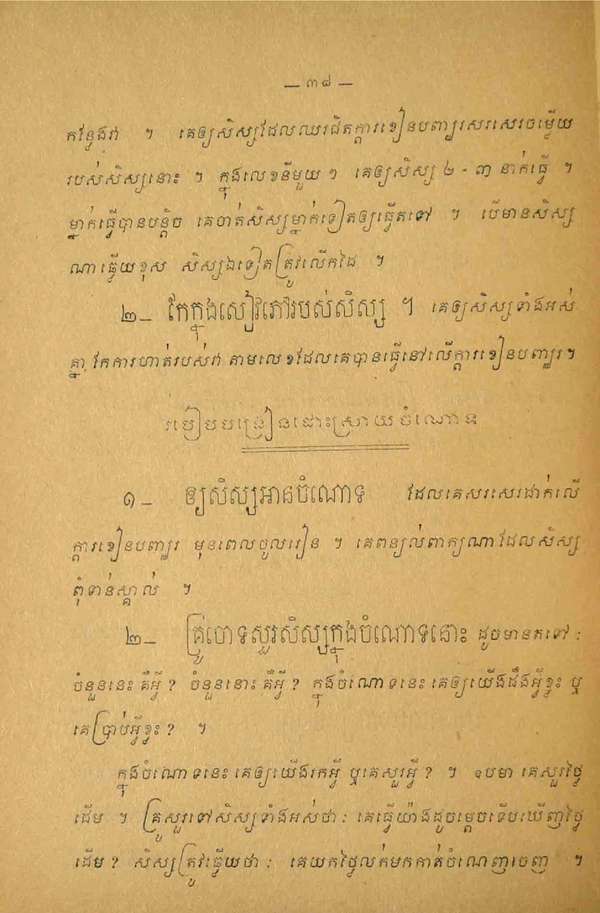 — ៣៨ —
កន្លែងវា ។ គេឲ្យសិស្សដែលឈរជិតក្ដារខៀនបញ្ឈរសរសេរចម្លើយ
របស់សិស្សនោះ ។ ក្នុងលេខនីមួយៗ គេឲ្យសិស្ស ២ - ៣ នាក់ធ្វើ ។
ម្នាក់ធ្វើបានបន្ដិច គេចាត់សិស្សម្នាក់ទៀតឲ្យធ្វើតទៅ ។ បើមានសិស្ស
ណាធ្វើយខុស សិស្សឯទៀតត្រូវលើកដៃ ។
២_ កែក្នុងសៀវភៅរបស់សិស្ស ។ គេឲ្យសិស្សទាំងអស់
គ្នា កែការហាត់របស់វា តាមលេខដែលគេបានធ្វើនៅលើក្ដារខៀនបញ្ឈរ។
របៀបបង្រៀនដោះស្រាយចំណោទ
១_ ឲ្យសិស្សអានចំណោទ ដែលគេសរសេរដាក់លើ
ក្ដារខៀនបញ្ឈរ មុនពេលចូលរៀន ។ គេពន្យល់ពាក្យណាដែលសិស្ស
ពុំទាន់ស្គាល់ ។
២_ គ្រូចោទសួរសិស្សក្នុងចំណោទនោះ ដូចមានតទៅ :
ចំនួននេះ គឺអ្វី ? ចំនួននោះ គឺអ្វី ? ក្នុងចំណោទនេះ គេឲ្យយើងដឹងអ្វីខ្លះ ឬ
គេប្រាប់អ្វីខ្លះ ? ។
ក្នុងចំណោទនេះ គេឲ្យយើងរកអ្វី ឬគេសួរអ្វី ? ។ ឧបមា គេសួរថ្លៃ
ដើម ។ គ្រូសួរទៅសិស្សទាំងអស់ថា : គេធ្វើយ៉ាងដូចម្ដេចទើបឃើញថ្លៃ
ដើម ? សិស្សត្រូវធ្វើយថា : គេយកថ្លៃលក់មកកាត់ចំណេញចេញ ។